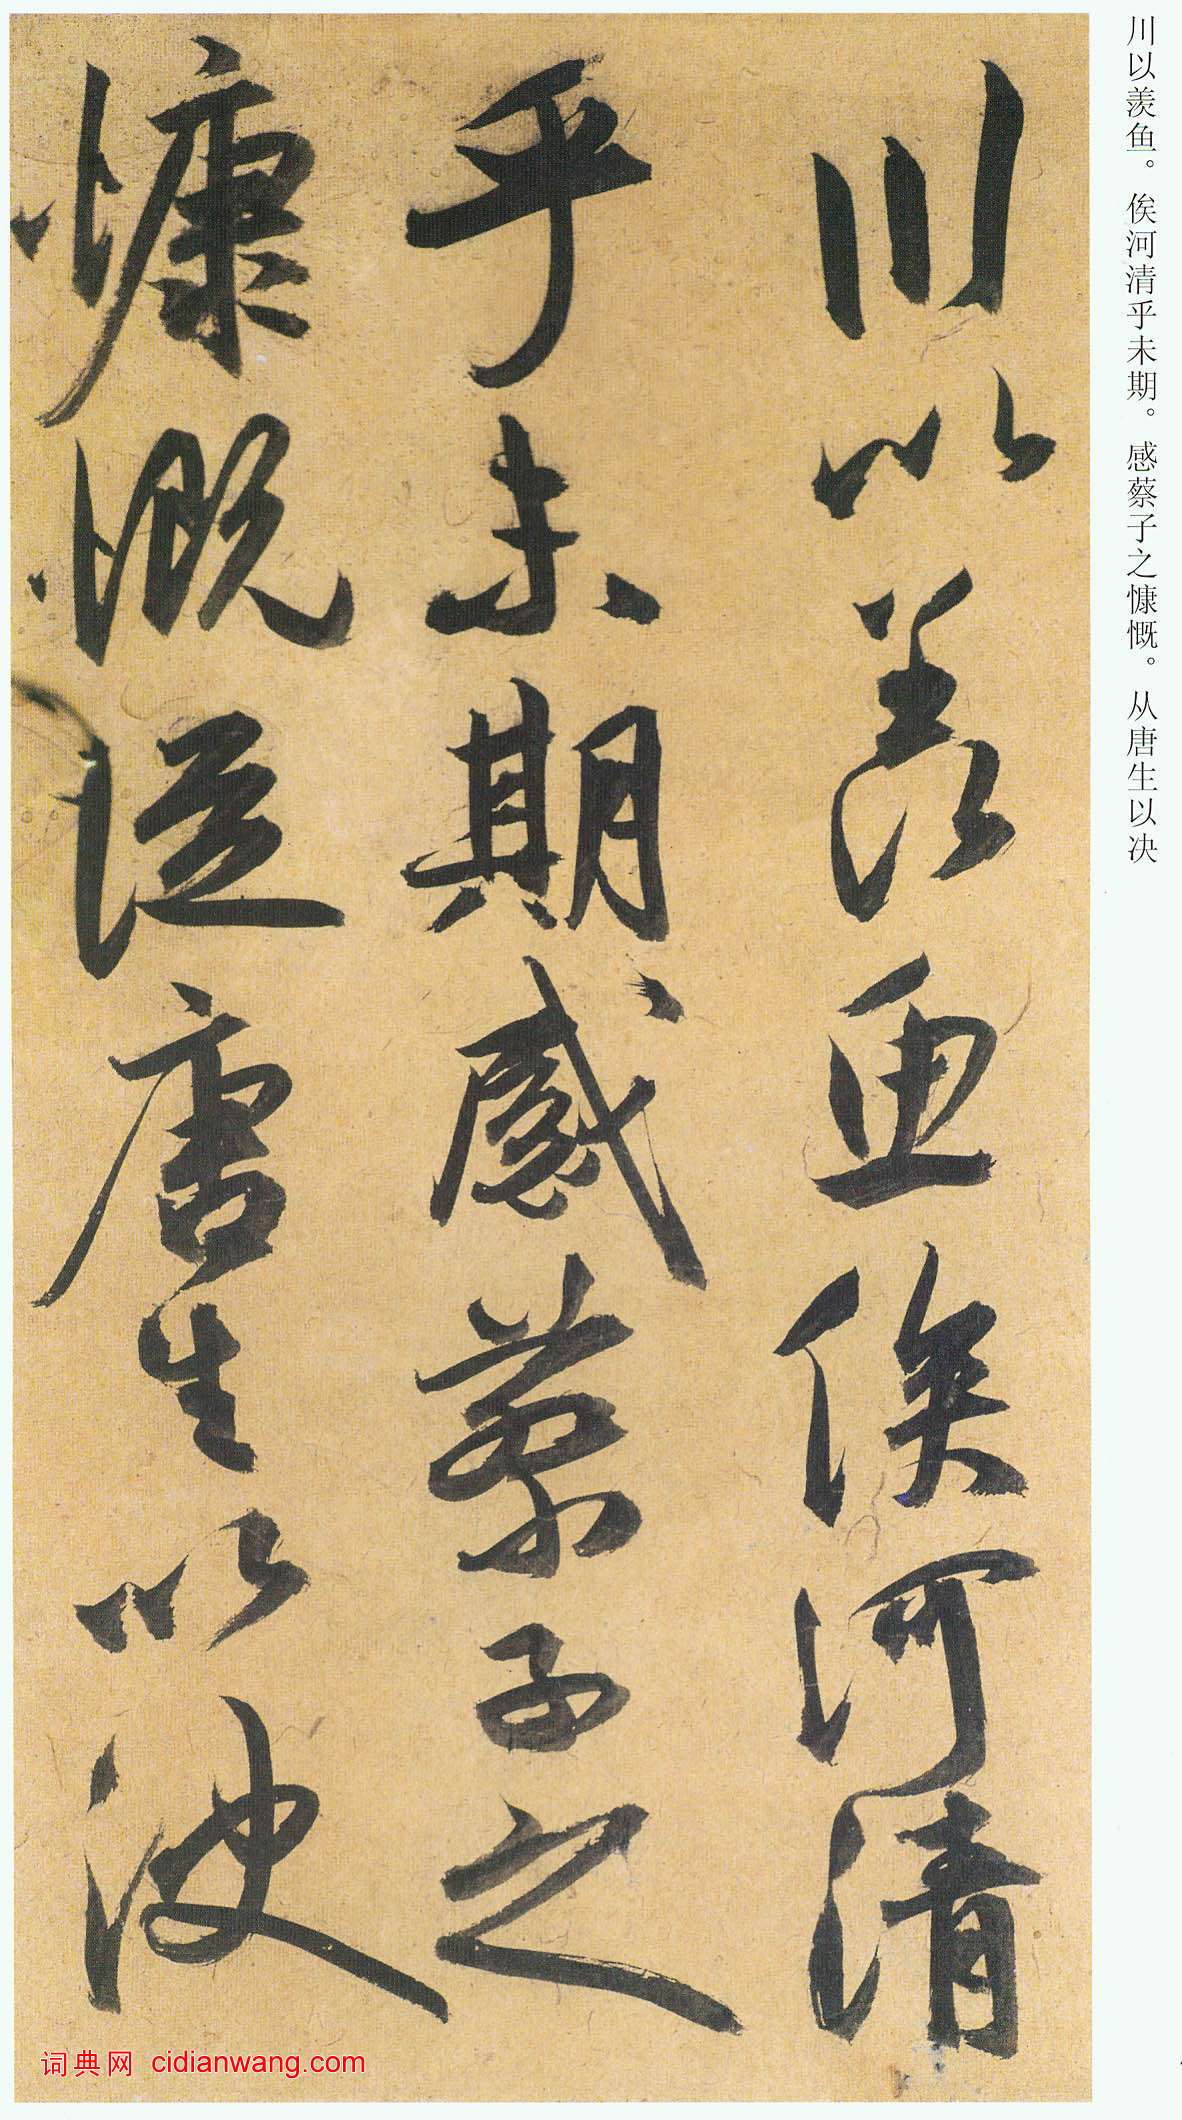 川以羡鱼。俟河清乎未期。感蔡子之慷慨。从唐生以决
川以羡魚俟河清
乎未期感蔡子之
慷慨從唐生以決
词典网 cidianwang.com